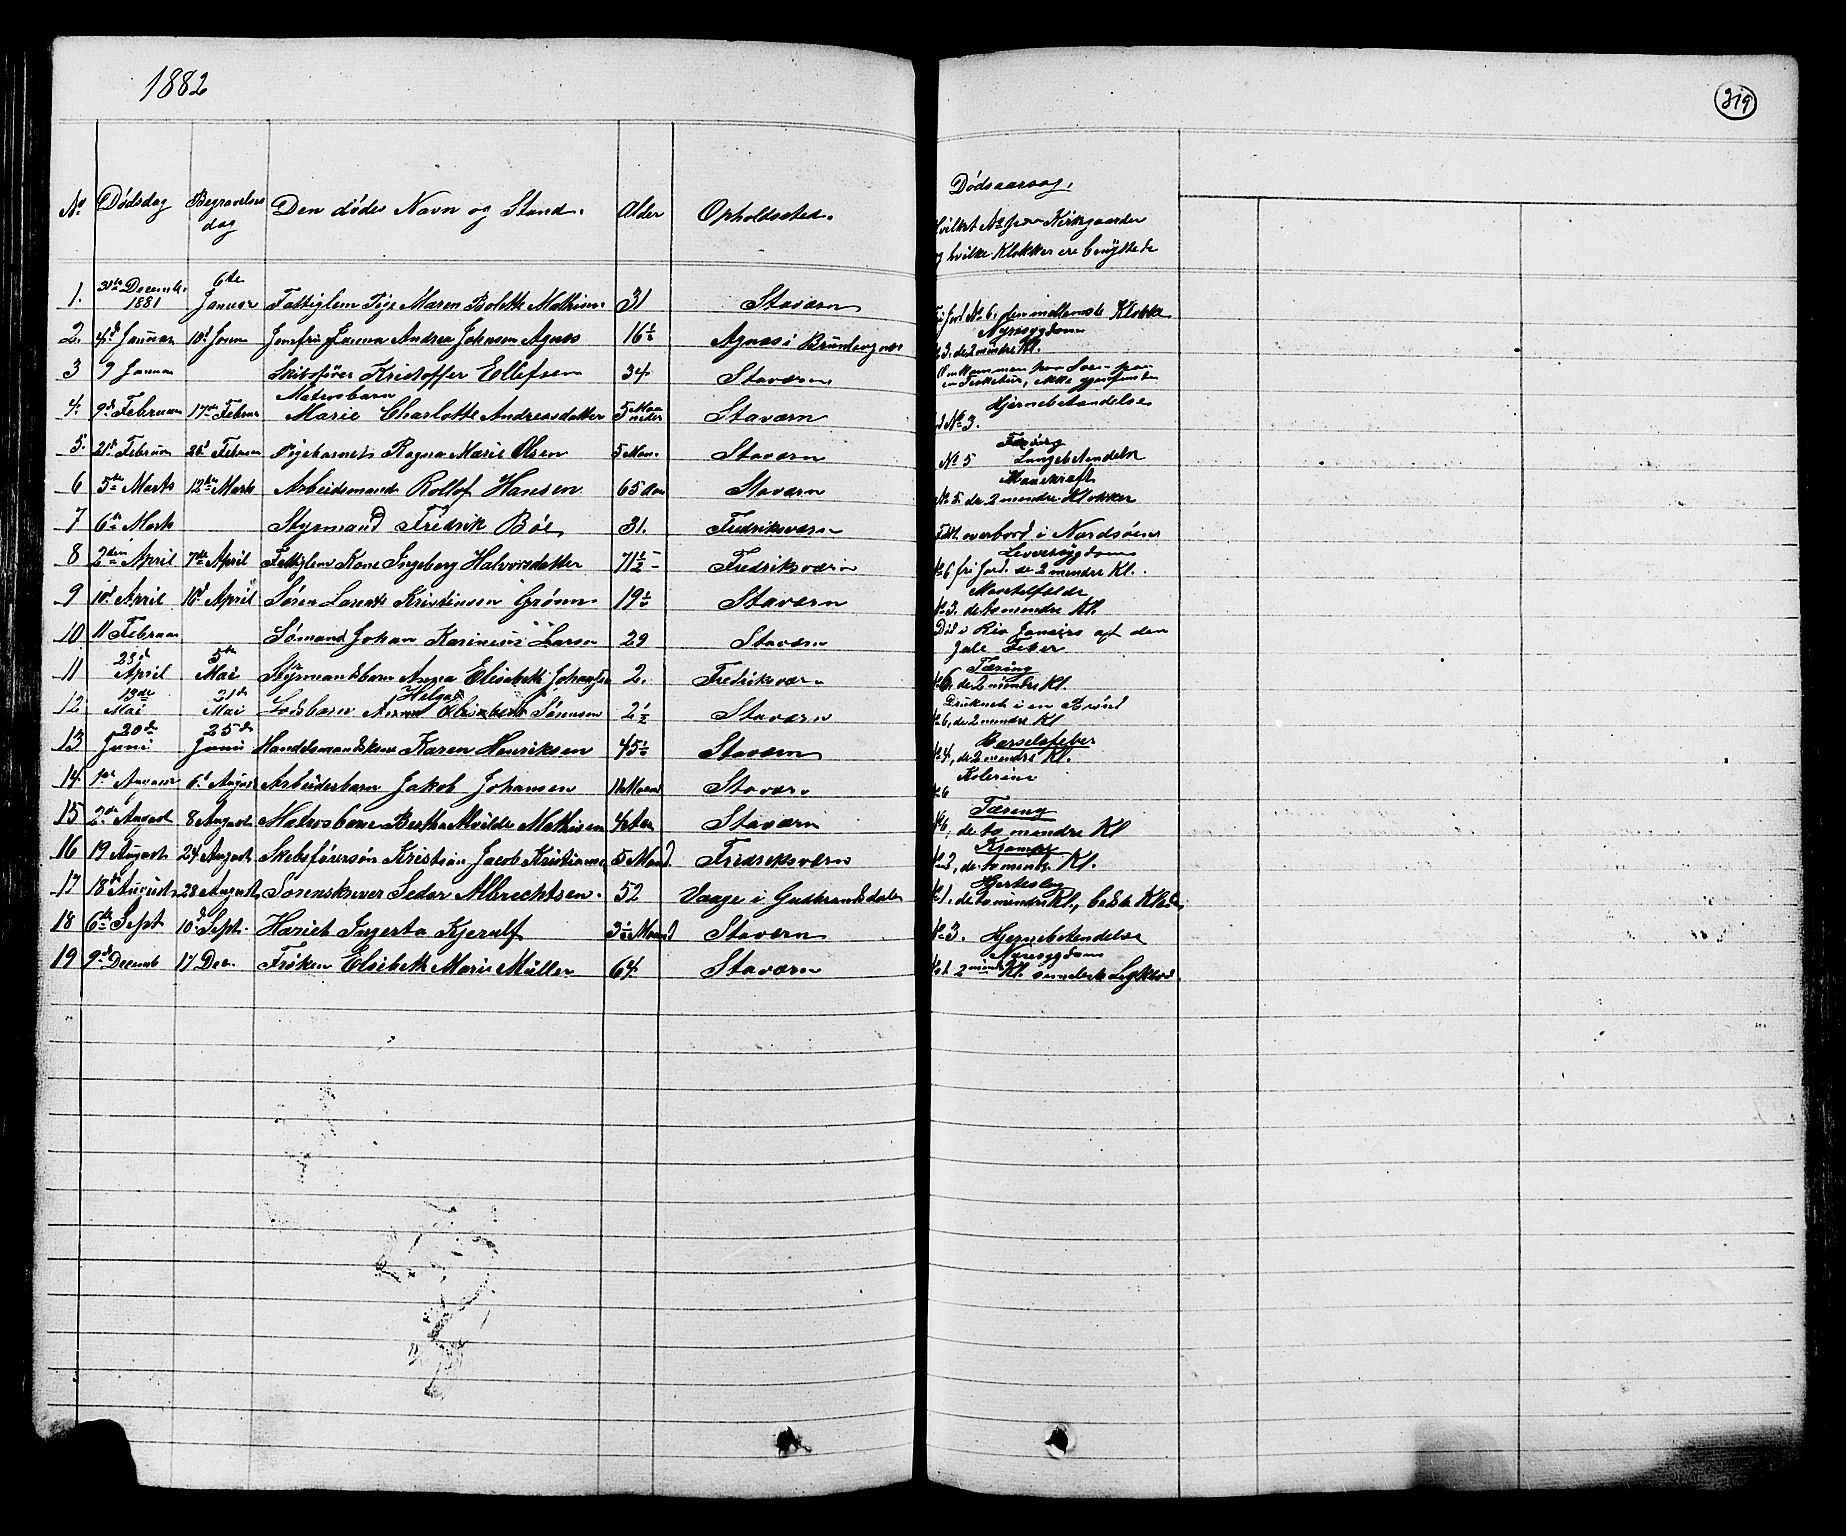 1882
219
No Dødsdag Begravelses dag Den dødes Navn og Stand. Alder Opholdssted. Dødsaarsag.
Hvilket No paa Kirkegaarden
og hvilke Klokker ere benyttede
1. 31te Decemb. 1881 6te Januar Fattiglem Pige Maren Bolette Mathisen 31 Staværn Fri Jord No 6. den mellemste Klokke
2. 4d Januar 10d Janu Jomfru Hanna Andrea Johnsen Agnæs 16½ Agnæs i Brunlangnæs Nyresygdom
3. de 2 mindre Kl.
3 9 Januar Skibsfører Kristoffer Ellefsen 34 Staværn Omkommen paa Søen paa
en Fisketur, ikke gjenfunden
4. 9d Februar 17de Februar Matrosbarn Marie Charlotte Andreasdatter 5 Maaneder Staværn Hjernebetændelse
No 3.
5. 21d Februar 26d Februar Pigebarnet Ragna Marie Olsen 5 Maan. Staværn
No 5 Lungebetændelse
6 5te Marts 12te Marts Arbeidsmand Rollof Hansen 65 Aar Staværn Mavekræft
No 5 de 2 mindre Klokker
7 6te Marts Styrmand Fredrik Böe 31. Fredriksværn Faldt overbord i Nordsøen
8 2den April 7de April Fattiglem Kone Ingeborg Halvorsdatter 71½ Fredriksværn Leversygdom
No 6 fri Jord. de 2 mindre Kl.
9 10d April 16d April Søren Laurits Kristensen Grønn 19½ Staværn
No 3. de to mindre Kl.
10 11 Februar Sømand Johan Karinius Larsen 29 Staværn Død i Rio Janeiro af den
gule Feber
11 23d April 5te Mai Styrmandsbarn Anna Elisabeth Johansen 2. Fredriksværn Tæring
No 6, de 2 mindre Kl.
12 13de Mai 21d Mai Lodsbarn Helga Sørensen 2½ Staværn Druknet i en Brønd
No 6, de 2 mindre Kl
13 20de Juni 25d Juni Handelsmandskone Karen Henriksen 45½ Staværn Barselsfeber
No 4, de 2 mindre Kl.
14 1ste August 6d August Arbeiderbarn Jakob Johansen 11 Maan Staværn Kolerine
No 6
15 2den August 8 August Matrosbarn Bertha Mathilde Mathisen 4 Aar Staværn Tæring
No 6, de to mindre Kl
16 19 August 24 August Skibsførersøn Kristian Jacob Kristiansen 5 Maaned. Fredriksværn Krampe
No 2, de to mindre Kl.
17 18de August 28 August Sorenskriver Peder Albrechtsen. 52 Vaage i Gudbrandsdalen Hjerteslag
No 1. de to mindre Kl., bedste Klæde
18 6te Sept 10d Sept. Hariet Ingerta Kjerulf 3½ Maaned Staværn No 3. Hjernebetændelse
19 9de Decemb 17 Dec. Frøken Elisabeth Marie Müller 64 Staværn Nyresygdom
No 1. 2 mindr Kl. simpleste Ligklæde.